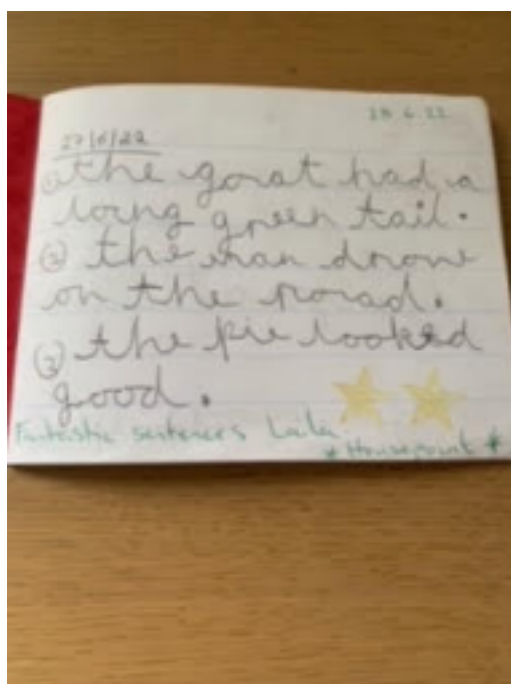 28.6.22
27/6/22
① the goat had a
long green tail.
② the man drove
on the road.
③ the pie looked
good.
Fantastic sentences Laila
* Housepoint *